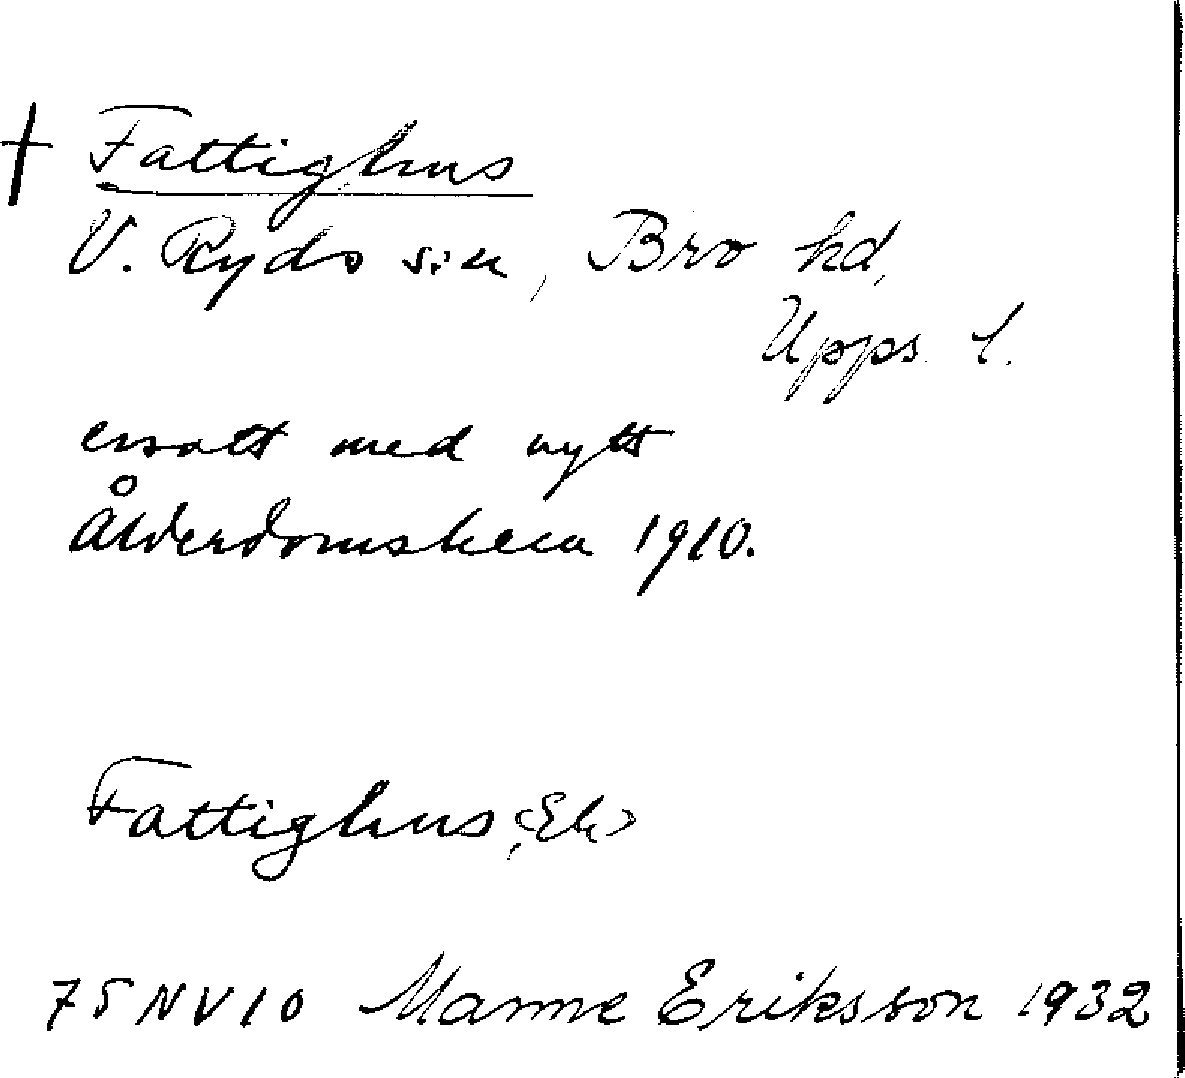 † Fattighus
V. Ryds s:n, Bro hd,
Upps. l.
ersatt med nytt
Ålderdomshem 1910.
Fattighus, <Ek>
75 NV 10 Manne Eriksson 1932